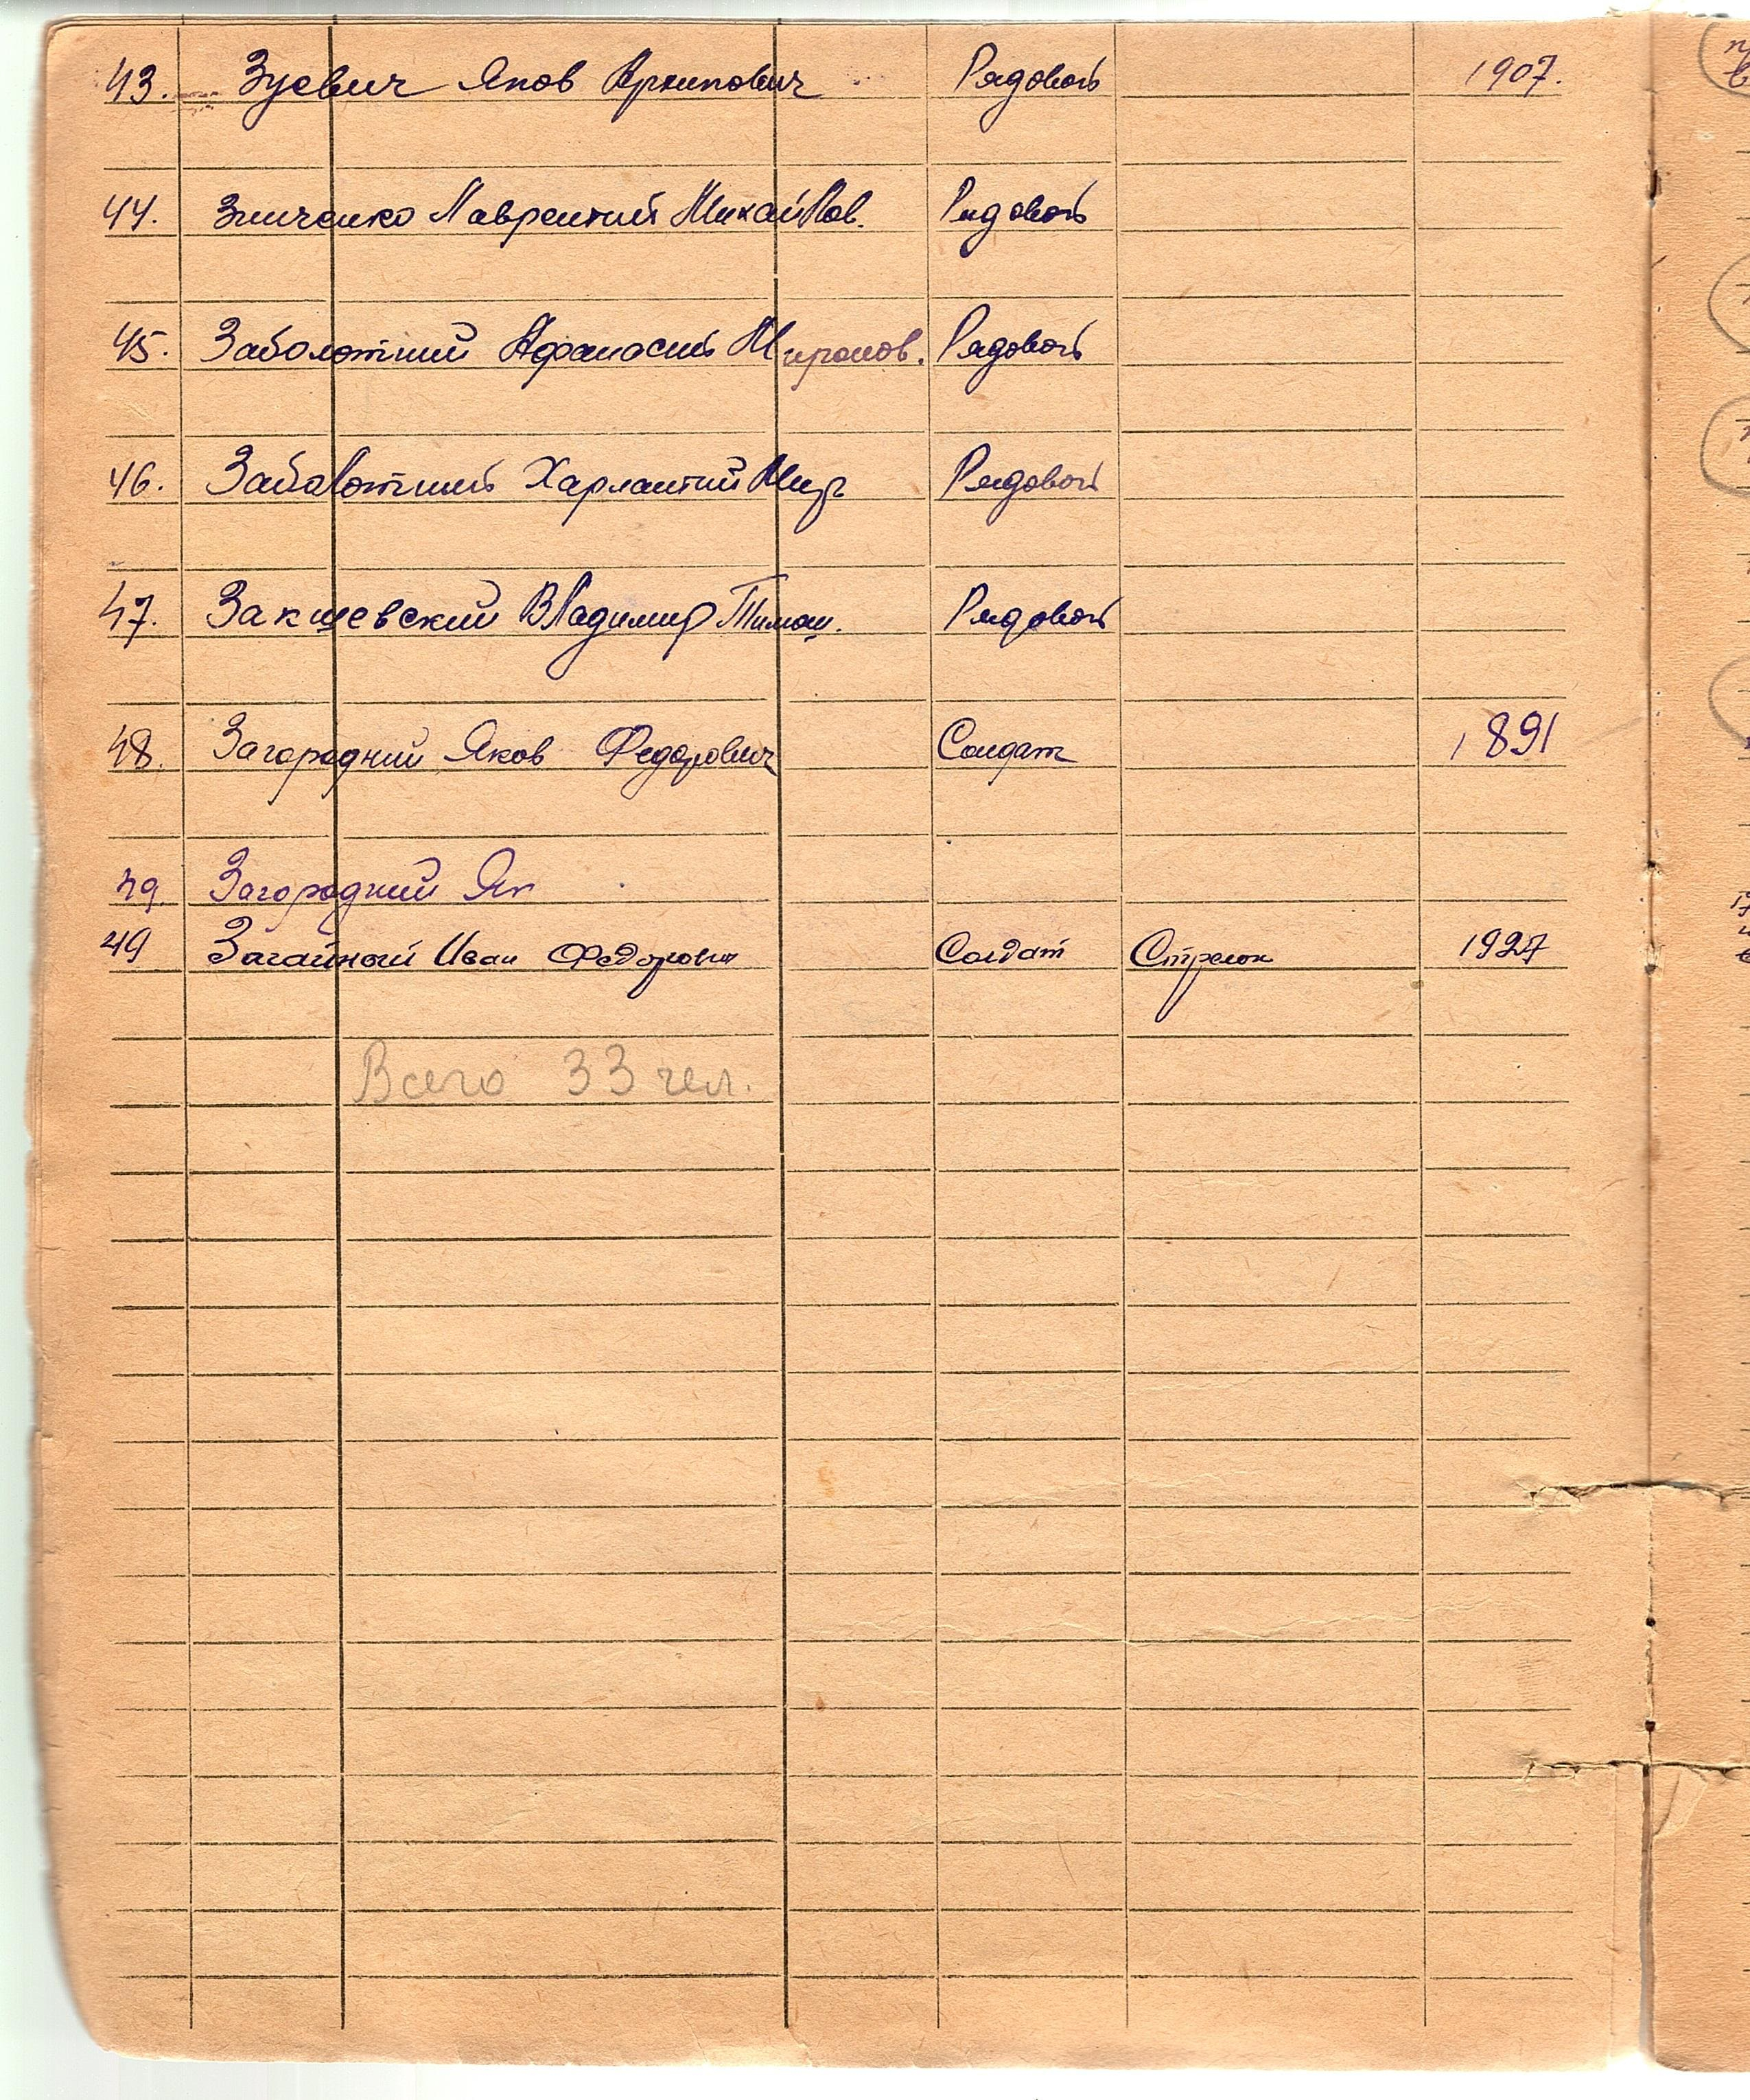 43. Зуевич Яков Архипович Рядовой 1907.
44. Зинченко Лаврентий Михайлов. Рядовой
45. Заболотний Афанасий Миронов. Рядовой
46. Заболотний Харлантий Мир Рядовой
47. Закшевский Владимир Тимош. Рядовой
48. Загородний Яков Федорович Солдат 1891
49. Загородний Як
49 Загайный Иван Федорович Солдат Стрелок 1927
Всего 33 чел.